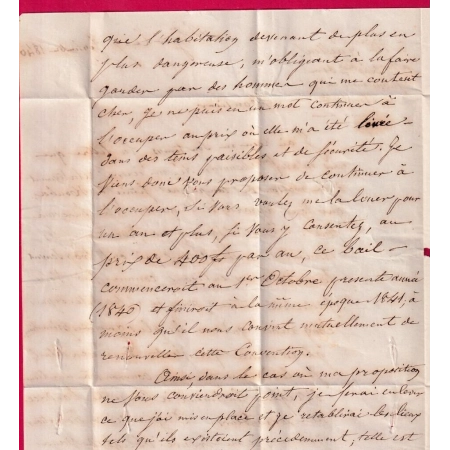 que l'habitation devenant de plus en
plus dangereuse, m'obligeant à la faire
garder par des hommes qui me coutent
cher, je ne puis en un mot continuer à
l'occuper au prix où elle m'a été louée
dans des tems paisibles et de sécurité. Je
viens donc vous proposer de continuer à
l'occuper, si vous voulez me la louer pour
un an et plus, si vous y consentez, au
prix de 400 fr par an, ce bail
commenceroit au 1er Octobre presente année
(1840 et finiroit à la même epoque 1841, à
moins qu'il nous convint mutuellement de
renouveller cette Convention.
Ainsi, dans le cas où ma proposition
ne vous conviendroit point, je ferai enlever
ce que j'ai mis en place et je retablirai les lieux
tels qu'ils existoient précédemment, telle est